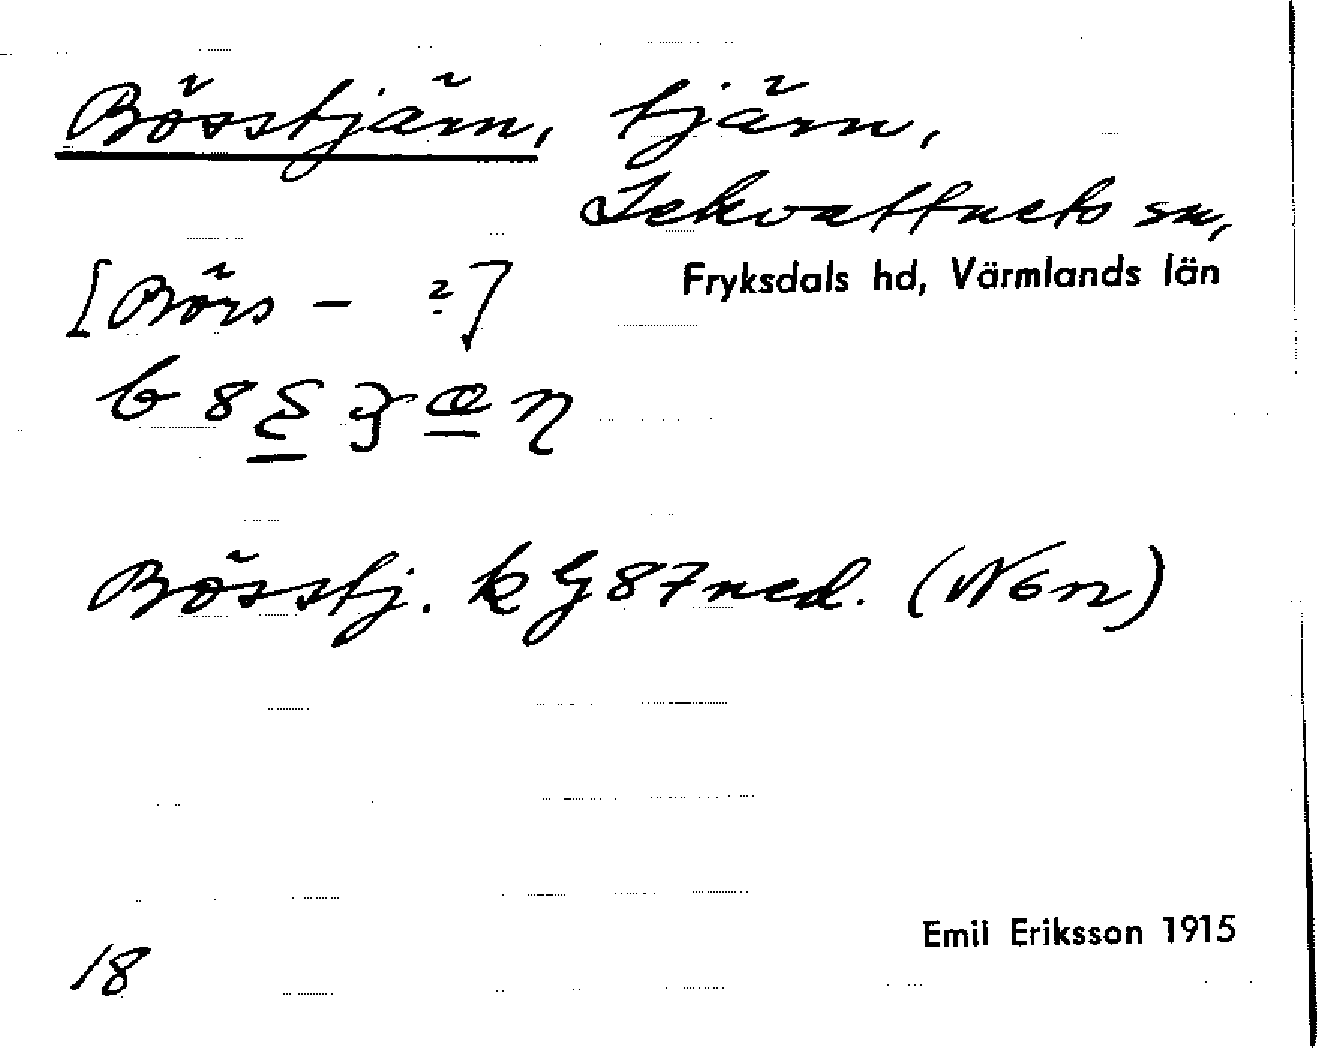 Bösstjärn, tjärn,
Lekvattnets sn,
Fryksdals hd, Värmlands län
[Börs - ?]
Bösstj. k G 87 ned. (N6n)
Emil Eriksson 1915
18